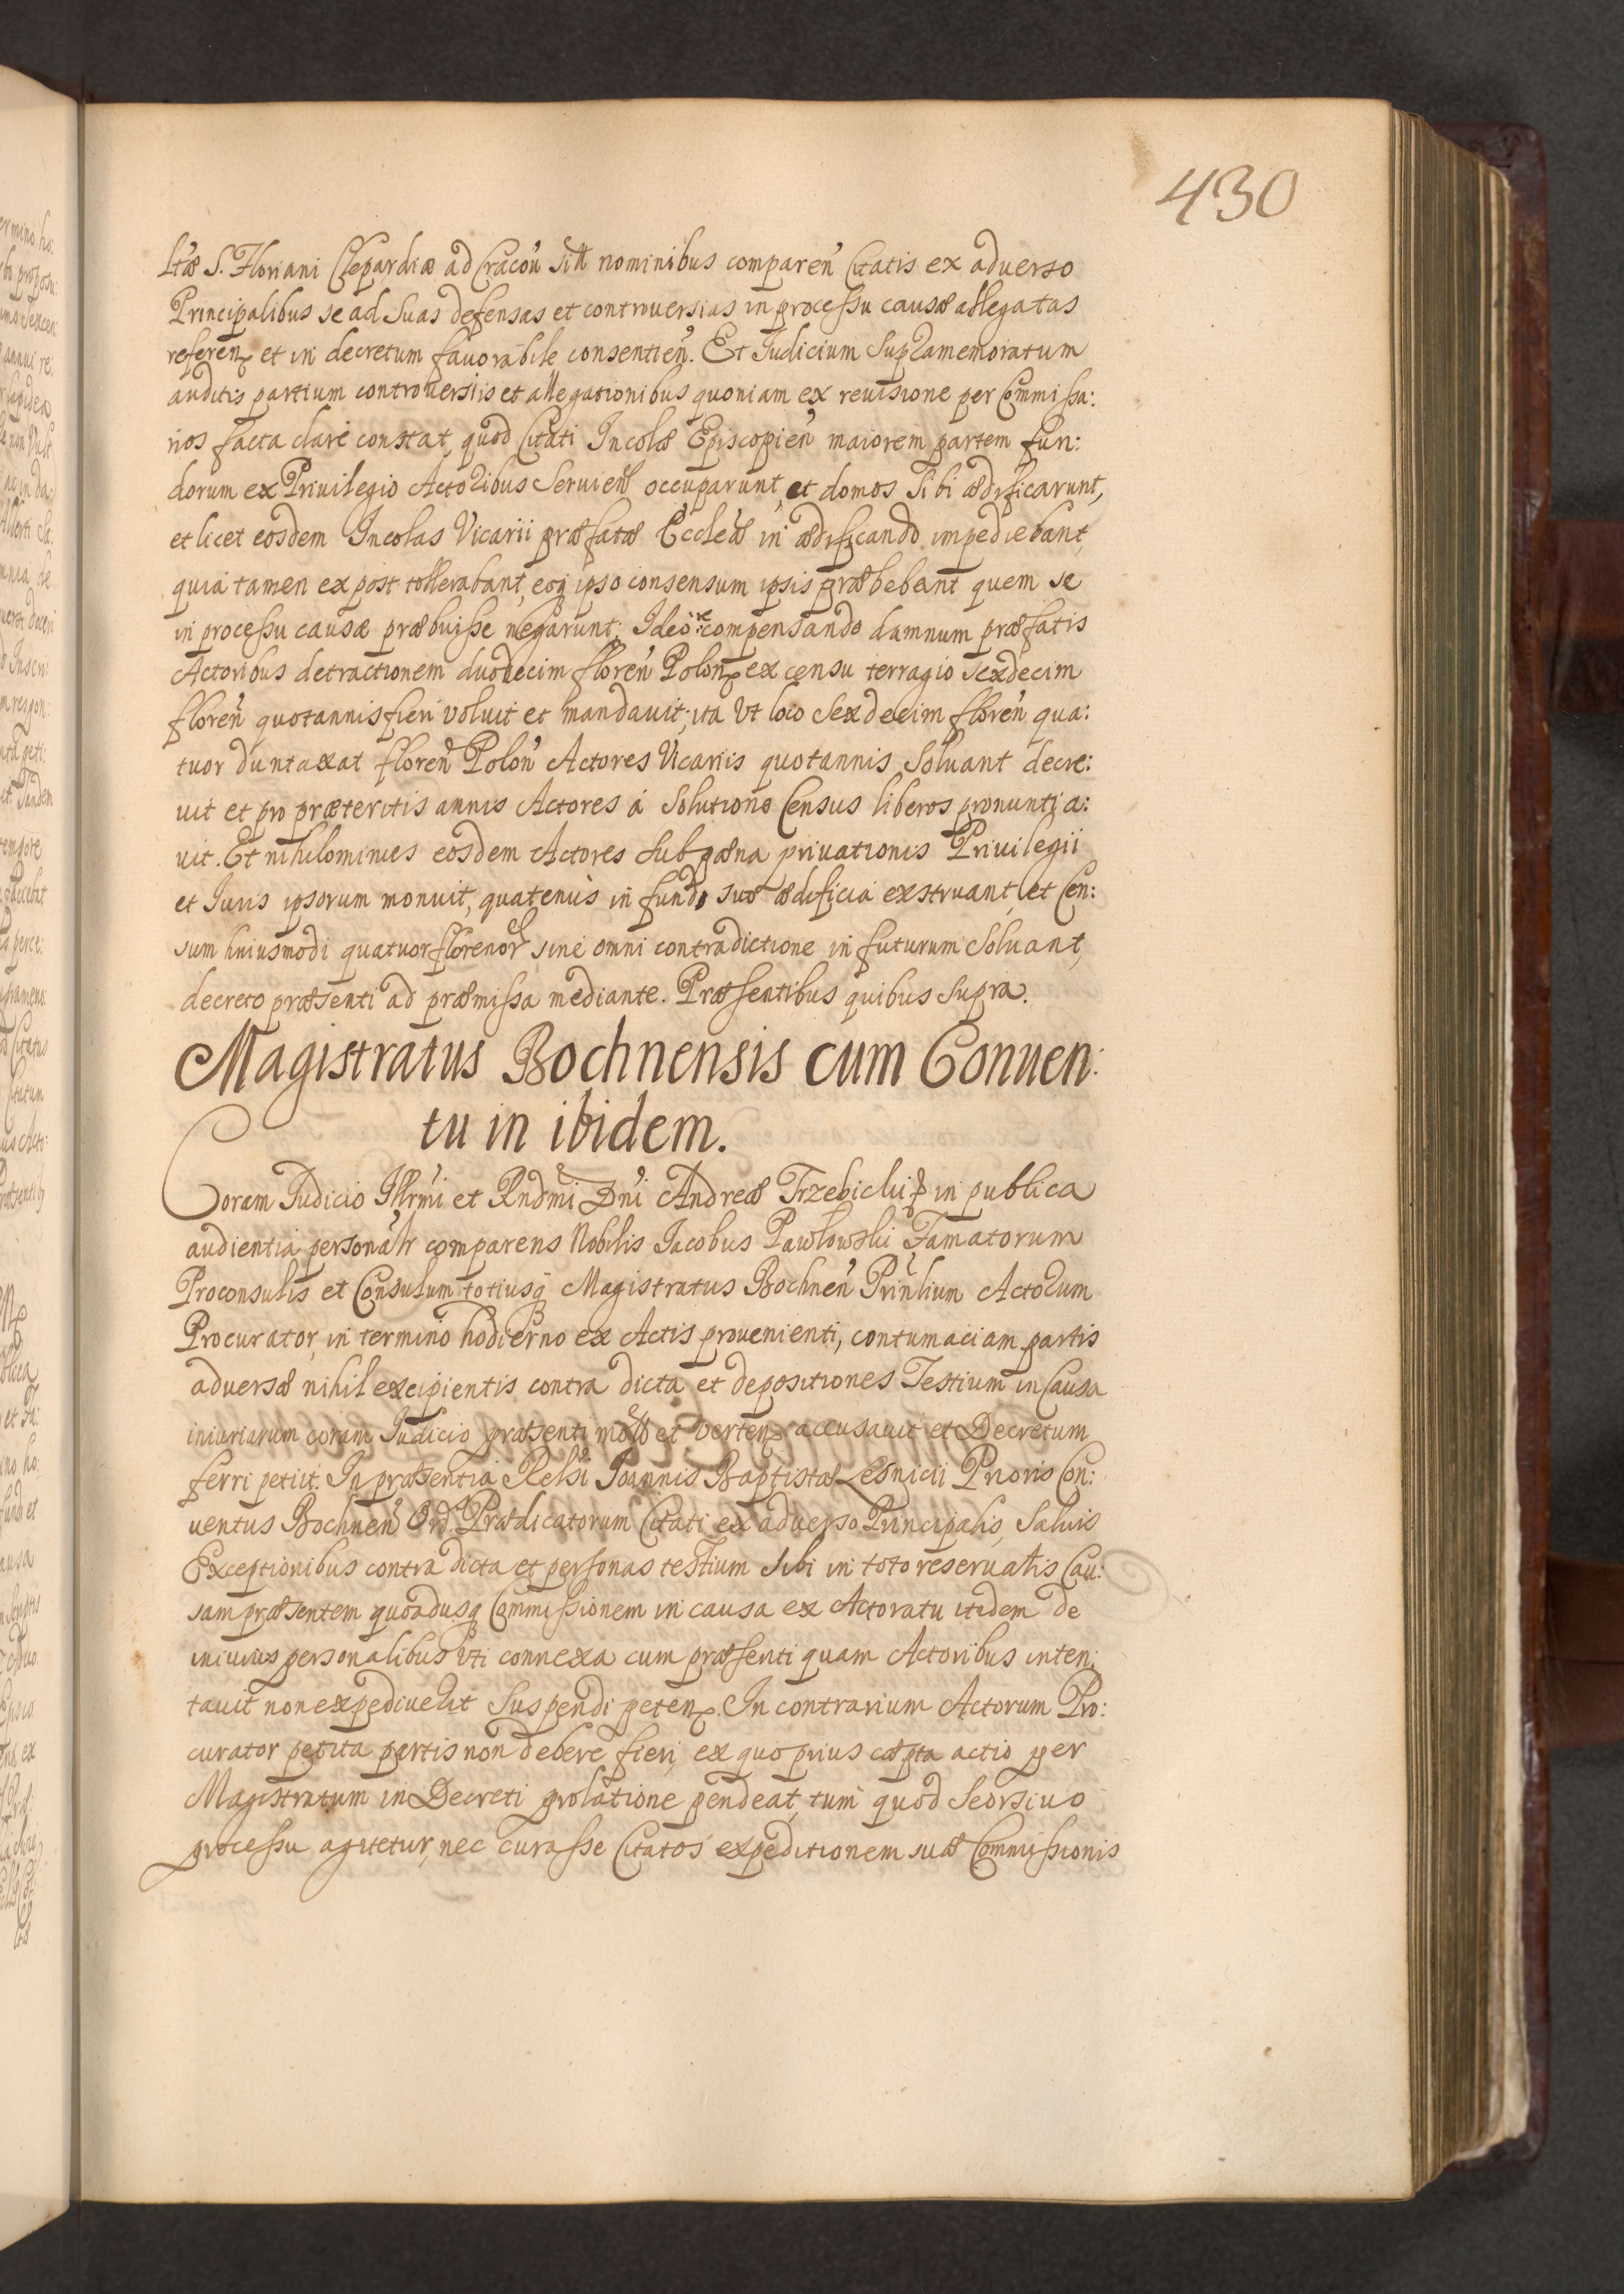 430
ltæ S. Floriani Clepardiæ ad Cracoũ sitt nominibus compareñ Citatis ex aduerso
Principalibus se ad Suas defensas et controuersias in processu causæ allegatas
referen et in decretum fauorabile consentieñ. Et Iudicium Supramemoratum
auditis partium controversiis et allegationibus quoniam ex reuisione per Commissa:
rios facta clare constat, quod Citati Incolæ Episcopieñ maiorem partem fun:
dorum ex Priuilegio Actoribus Servieñ occuparunt, et domos Sibi ædificarunt,
et licet eosdem Incolas Vicarii præfatæ Eccleæ in ædificando impediebant,
quia tamen ex post tollerabant, eoq ipso consensum ipsis præbebant quem se
in processu causæ præbuisse negarunt; Ideo recompensando damnum præfatis
Actoribus detractionem duodecim floreñ Polon ex censu terragio sexdecim
floreñ quotannis fieri voluit et mandauit, ita Vt loco Sexdecim floreñ qua:
tuor duntaxat floreñ Poloñ Actores Vicariis quotannis Soluant decre:
uit et pro præteritis annis Actores á Solutione Census liberos pronuntia:
uit. Et nihilominus eosdem Actores Sub pæna priuationis Priuilegii
et Iuris ipsorum monuit, quatenus in fundo suo ædificia exstruant, et Cen:
sum huiusmodi quatuor florenor sine omni contradictione in futurum Soluant,
decreto præsenti ad præmissa mediante. Præsentibus quibus Supra.
Magistratus Bochnensis cum Conuen:
tu in ibidem.
Coram Iudicio Illrmi et Rndmi Dni Andreæ Trzebicki in publica
audientia personalr comparens Nobilis Iacobus Pawłowski Famatorum
Proconsulis et Consulum totiusq Magistratus Bochneñ Prinlium Actorum
Procurator, in termino hodierno ex Actis provenienti, contumaciam partis
adversæ nihil excipientis contra dicta et depositiones Testium in Causa
iniuriarum coram Iudicio præsenti mott et verten accusauit et Decretum
ferri petiit. In præsentia Relsi Ioannis Baptistæ Lesnicii Prioris Con:
uentus Bochneñ Ord. Prædicatorum Citati ex aduerso Principalis, Saluis
Exceptionibus contra dicta et personas testium sibi in toto reseruatis Cau:
sam præsentem quoadusq Commissionem in causa ex Actoratu itidem de
iniuriis personalibus Vti connexa cum præsenti quam Actoribus inten:
tauit non expediuerit Suspendi peten. In contrarium Actorum Pro:
curator petita partis non debere fieri, ex quo prius cæpta actio per
Magistratum in Decreti prolatione pendeat, tum quod Seorsiuo
processu agitetur, nec curasse Citatos expeditionem suæ Commissionis